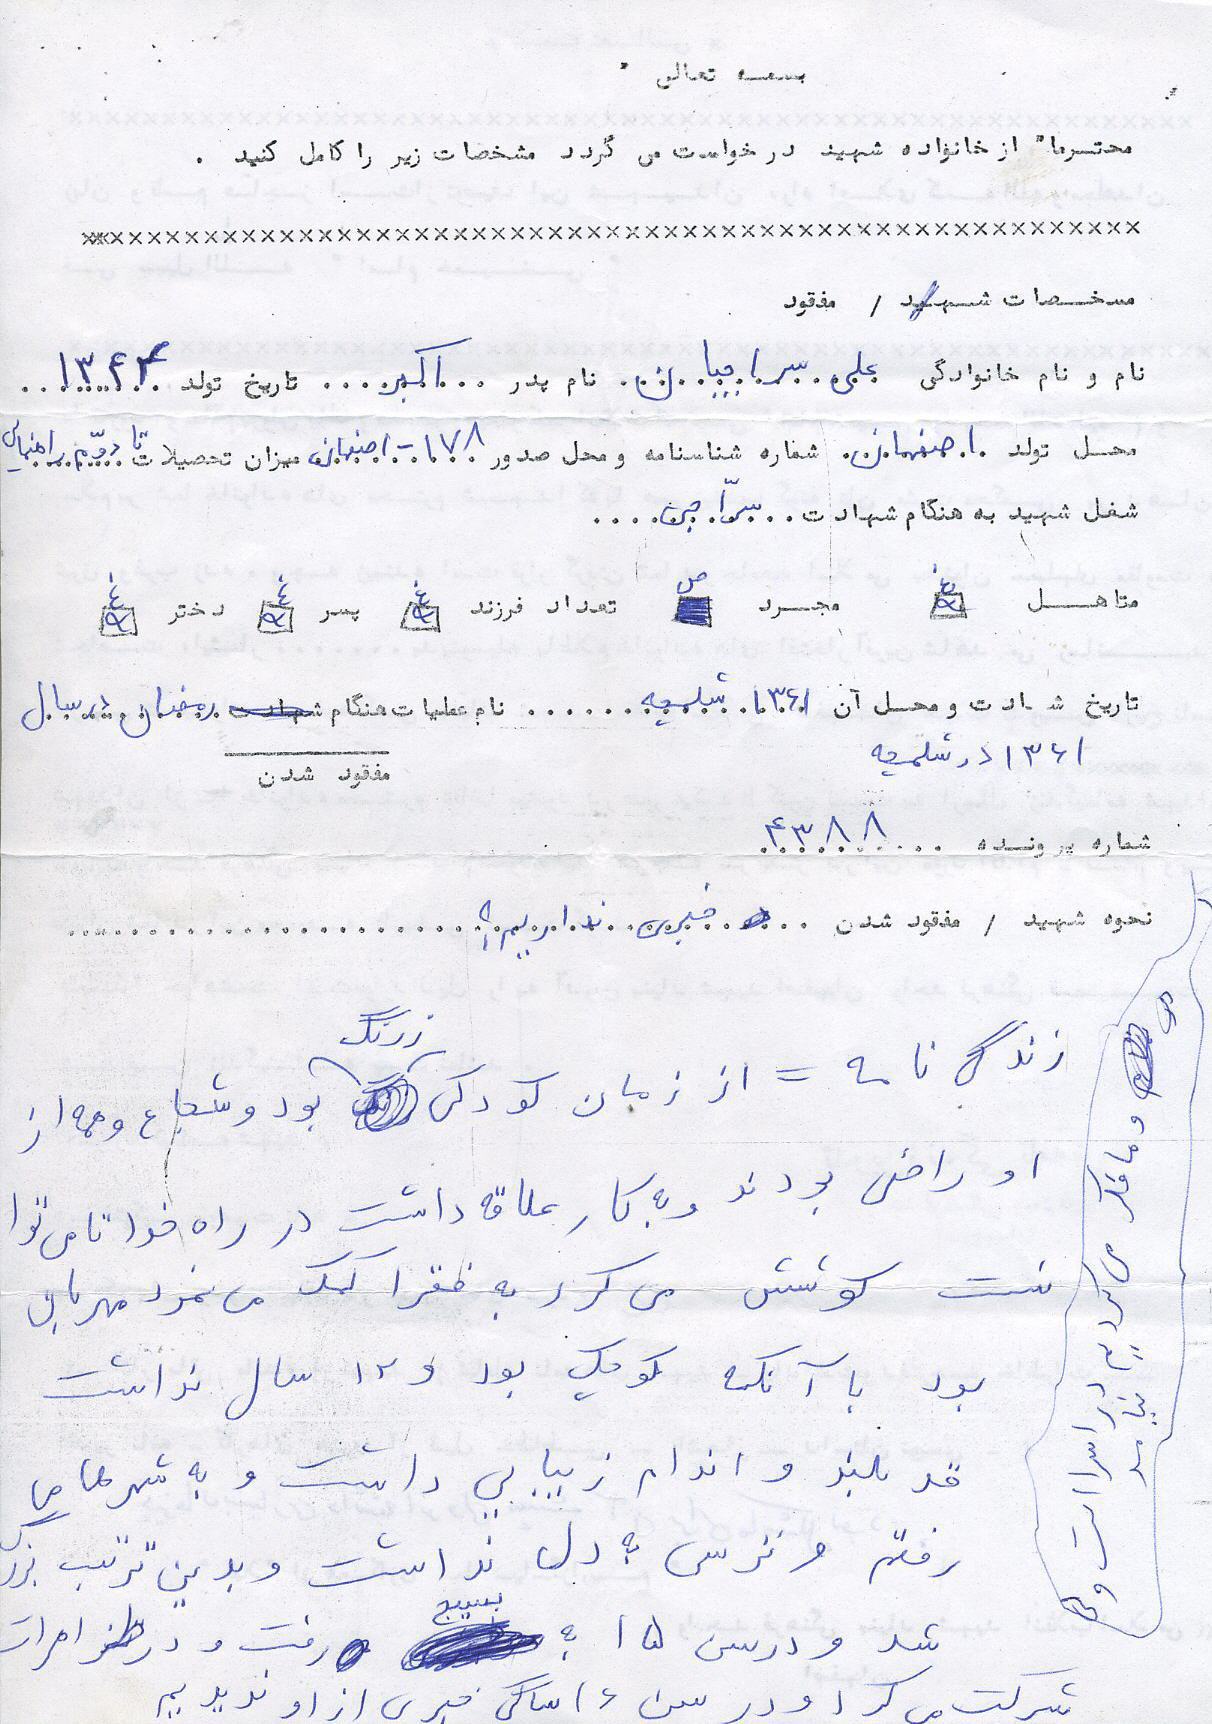 بسمه تعالی
محترما" از خانواده شهید درخواست می گردد مشخصات زیر را کامل کنید .
مشخصات شهید / مفقود
نام و نام خانوادگی علی سراجیان نام پدر اکبر تاریخ تولد ۱۳۴۴
محل تولد اصفهان شماره شناسنامه و محل صدور ۱۷۸ - اصفهان میزان تحصیلات تا دوّم راهنمایی
شغل شهید به هنگام شهادت سرّاجی
متاهل مجرد تعداد فرزند پسر دختر
تاریخ شهادت و محل آن ۱۳۶۱ شلمچه نام عملیات هنگام شهادت رمضان در سال
مفقود شدن
۱۳۶۱ در شلمچه
شماره پرونده ۴۳۸۸
نحوه شهید / مفقود شدن خبری نداریم
زندگی نامه = از زمان کودکی زرنگ بود و شجاع و همه از
او راضی بودند و به کار علاقه داشت در راه خدا تا می توا
نست کوشش می کرد به فقرا کمک می نمود مهربان
بود با آنکه کوچک بود و ۱۲ سال نداشت
قد بلند و اندام زیبایی داشت و به شهرها می
رفتم و ترسی به دل نداشت و بدین ترتیب بزرگ
شد و در سن ۱۵ به بسیج رفت و در
شرکت می کرد و در سن ۱۶ سالگی خبری از او ندیدیم
و ما فکر می کردیم در اسرا است و
نیامد